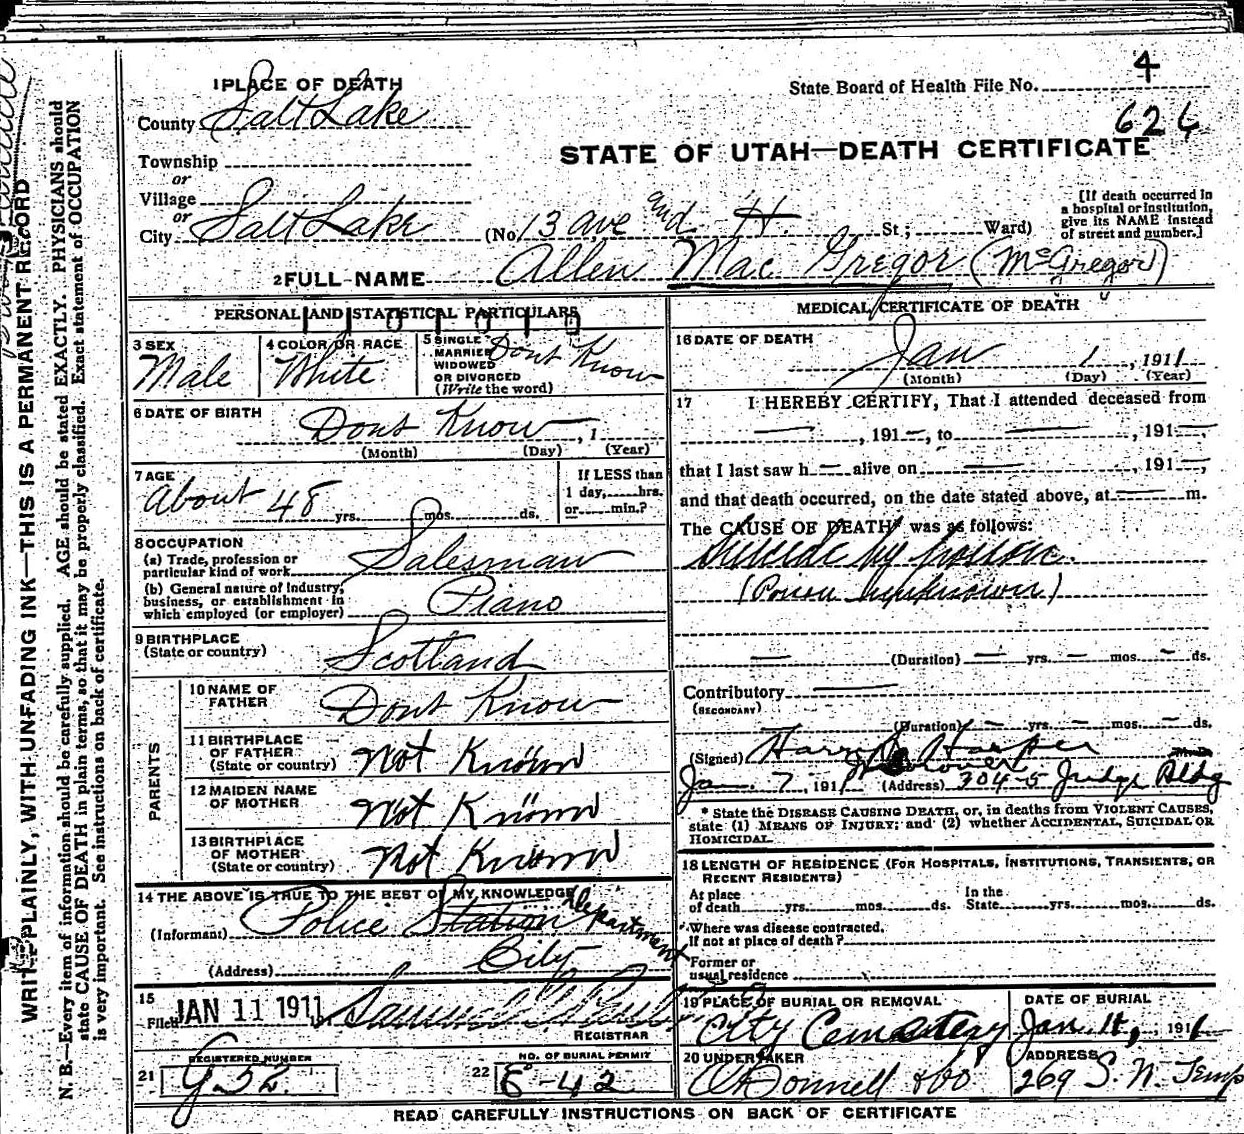 4
State Board of Health File No.
626
1 PLACE OF DEATH
County Salt Lake
Township
or
Village
or
City Salt Lake
STATE OF UTAH—DEATH CERTIFICATE
(No. 13 ave and H. St.; Ward)
[If death occurred in
a hospital or institution,
give its NAME instead
of street and number.]
2 FULL NAME Allen Mac Gregor (McGregor)
PERSONAL AND STATISTICAL PARTICULARS
3 SEX
Male
4 COLOR OR RACE
White
5 SINGLE
MARRIED
WIDOWED
OR DIVORCED
(Write the word)
Dont Know
6 DATE OF BIRTH
Dont Know, 1
(Month) (Day) (Year)
7 AGE
About 48 yrs. mos. ds.
If LESS than
1 day, hrs.
or min.?
8 OCCUPATION
(a) Trade, profession or
particular kind of work Salesman
(b) General nature of industry,
business, or establishment in
which employed (or employer) Piano
9 BIRTHPLACE
(State or country) Scotland
PARENTS
10 NAME OF
FATHER Dont Know
11 BIRTHPLACE
OF FATHER
(State or country) Not Known
12 MAIDEN NAME
OF MOTHER Not Known
13 BIRTHPLACE
OF MOTHER
(State or country) Not Known
14 THE ABOVE IS TRUE TO THE BEST OF MY KNOWLEDGE
(Informant) Police Station Department
(Address) City
15
Filed JAN 11 1911
REGISTRAR
21 REGISTERED NUMBER
G 52.
22 NO. OF BURIAL PERMIT
E-42
MEDICAL CERTIFICATE OF DEATH
16 DATE OF DEATH
Jan 1, 1911
(Month) (Day) (Year)
17 I HEREBY CERTIFY, That I attended deceased from
—, 191—, to —, 191—,
that I last saw h— alive on —, 191—,
and that death occurred, on the date stated above, at — m.
The CAUSE OF DEATH* was as follows:
Suicide by poison.
(Poison unknown)
— (Duration) — yrs. — mos. — ds.
Contributory —
(SECONDARY)
(Duration) — yrs. — mos. — ds.
(Signed) Harry S. Harper
Jan. 7, 1911 (Address) 304-5 Judge Bldg
* State the DISEASE CAUSING DEATH, or, in deaths from VIOLENT CAUSES,
state (1) MEANS OF INJURY; and (2) whether ACCIDENTAL, SUICIDAL OR
HOMICIDAL.
18 LENGTH OF RESIDENCE (FOR HOSPITALS, INSTITUTIONS, TRANSIENTS, OR
RECENT RESIDENTS)
At place
of death yrs. mos. ds.
In the
State yrs. mos. ds.
Where was disease contracted,
if not at place of death?
Former or
usual residence
19 PLACE OF BURIAL OR REMOVAL
City Cemetery
DATE OF BURIAL
Jan. 11, 1911
20 UNDERTAKER
O'Donnell & Co
ADDRESS
269 S. W. Temp
READ CAREFULLY INSTRUCTIONS ON BACK OF CERTIFICATE
WRITE PLAINLY, WITH UNFADING INK—THIS IS A PERMANENT RECORD
N. B.—Every item of information should be carefully supplied. AGE should be stated EXACTLY. PHYSICIANS should
state CAUSE OF DEATH in plain terms, so that it may be properly classified. Exact statement of OCCUPATION
is very important. See instructions on back of certificate.